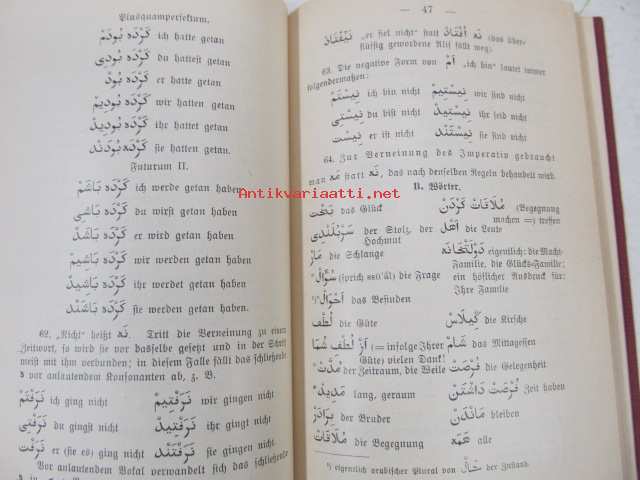 Plusquamperfektum.
كَرْدَه بُودَمْ ich hatte getan
كَرْدَه بُودِى du hattest getan
كَرْدَه بُودْ er hatte getan
كَرْدَه بُودِيمْ wir hatten getan
كَرْدَه بُودِيدْ ihr hattet getan
كَرْدَه بُودَنْد sie hatten getan.
Futurum II.
كَرْدَه بَاشَمْ ich werde getan haben
كَرْدَه بَاشِى du wirst getan haben
كَرْدَه بَاشَدْ er wird getan haben
كَرْدَه بَاشِيمْ wir werden getan haben
كَرْدَه بَاشِيدْ ihr werdet getan haben
كَرْدَه بَاشَنْد sie werden getan haben.
62. „Nicht" heißt نَه. Tritt die Verneinung zu einem
Zeitwort, so wird sie vor dasselbe gesetzt und in der Schrift
meist mit ihm verbunden; in diesem Falle fällt das schließende
ه vor anlautendem Konsonanten ab, z. B.
نَرَفْتَمْ ich ging nicht نَرَفْتِيمْ wir gingen nicht
نَرَفْتِى du gingst nicht نَرَفْتِيدْ ihr gingt nicht
نَرَفْت er (sie es) ging nicht نَرَفْتَنْد sie gingen nicht.
Vor anlautendem Vokal verwandelt sich das schließende
— 47 —
نَيُفْتَادْ „er fiel nicht" statt نَه اُفْتَادْ (das über-
flüssig gewordene Alif fällt weg)
63. Die negative Form von اَمْ „ich bin" lautet immer
folgendermaßen:
نِيسْتَمْ ich bin nicht نِيسْتِيمْ wir sind nicht
نِيسْتِى du bist nicht نِيسْتِيدْ ihr seid nicht
نِيسْت er ist nicht نِيسْتَنْد sie sind nicht
64. Zur Verneinung des Imperativ gebraucht
man مَه statt نَه, das nach denselben Regeln behandelt wird.
II. Wörter.
بَخْت das Glück
سَرْبُلَنْدِى der Stolz, der
Hochmut
مَارْ die Schlange
سُؤَالْ (sprich ssü'âl) die Frage
اَحْوَالْ das Befinden
لُطْف die Güte
اَزْ لُطْفِ شُمَا (= infolge Ihrer
Güte) vielen Dank!
مُدَّت der Zeitraum, die Weile
مَدِيدْ lang, geraum
بَرَادَرْ der Bruder
مُلَاقَات die Begegnung
مُلَاقَات كَرْدَنْ (Begegnung
machen =) treffen
اَهْل die Leute
دَوْلَتْخَانَه eigentlich: die Macht-
Familie, die Glücks-Familie;
ein höflicher Ausdruck für:
Ihre Familie
گِيلَاسْ die Kirsche
شَامْ das Mittagessen
فُرْصَت die Gelegenheit
فُرْصَت دَاشْتَنْ Zeit haben
مَانْدَنْ bleiben
هَمَه alle
¹) eigentlich arabischer Plural von حَالْ der Zustand.
Antikvariaatti.net